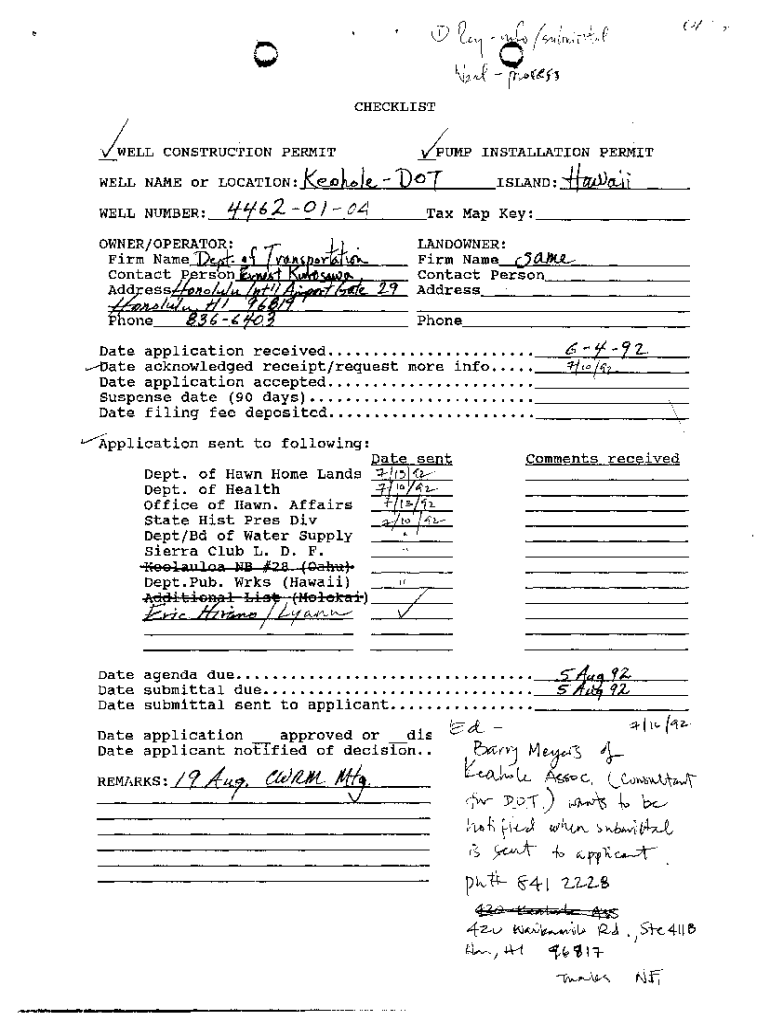 ① Reg - info/submittal
process
CHECKLIST
✓ WELL CONSTRUCTION PERMIT ✓ PUMP INSTALLATION PERMIT
WELL NAME or LOCATION: Keahole - DOT ISLAND: Hawaii
WELL NUMBER: 4462-01-04 Tax Map Key:
OWNER/OPERATOR: LANDOWNER:
Firm Name Dept. of Transportation Firm Name same
Contact Person Ernest Kurosawa Contact Person
Address Honolulu Int'l Airport Gate 29 Address
Honolulu HI 96819
Phone 836-6403 Phone
Date application received........................ 6-4-92
✓Date acknowledged receipt/request more info..... 7/10/92
Date application accepted........................
Suspense date (90 days)..........................
Date filing fee deposited........................
✓Application sent to following:
Date sent Comments received
Dept. of Hawn Home Lands 7/13/92
Dept. of Health 7/10/92
Office of Hawn. Affairs 7/13/92
State Hist Pres Div 7/10/92
Dept/Bd of Water Supply "
Sierra Club L. D. F. "
Koolauloa NB #28 (Oahu)
Dept.Pub. Wrks (Hawaii) "
Additional List (Molokai)
Eric Hirano/Lyann ✓
Date agenda due.................................. 5 Aug 92
Date submittal due............................... 5 Aug 92
Date submittal sent to applicant................
Date application __ approved or __dis
Date applicant notified of decision..
REMARKS: 19 Aug. CWRM Mtg.
Ed - 7/16/92
Barry Meyers of
Keahole Assoc. (Consultant
for DOT.) wants to be
notified when submittal
is sent to applicant.
ph# 841 2228
420 Ass
420 Waikamilo Rd., Ste 411B
Hon, HI 96817
Thanks NF,